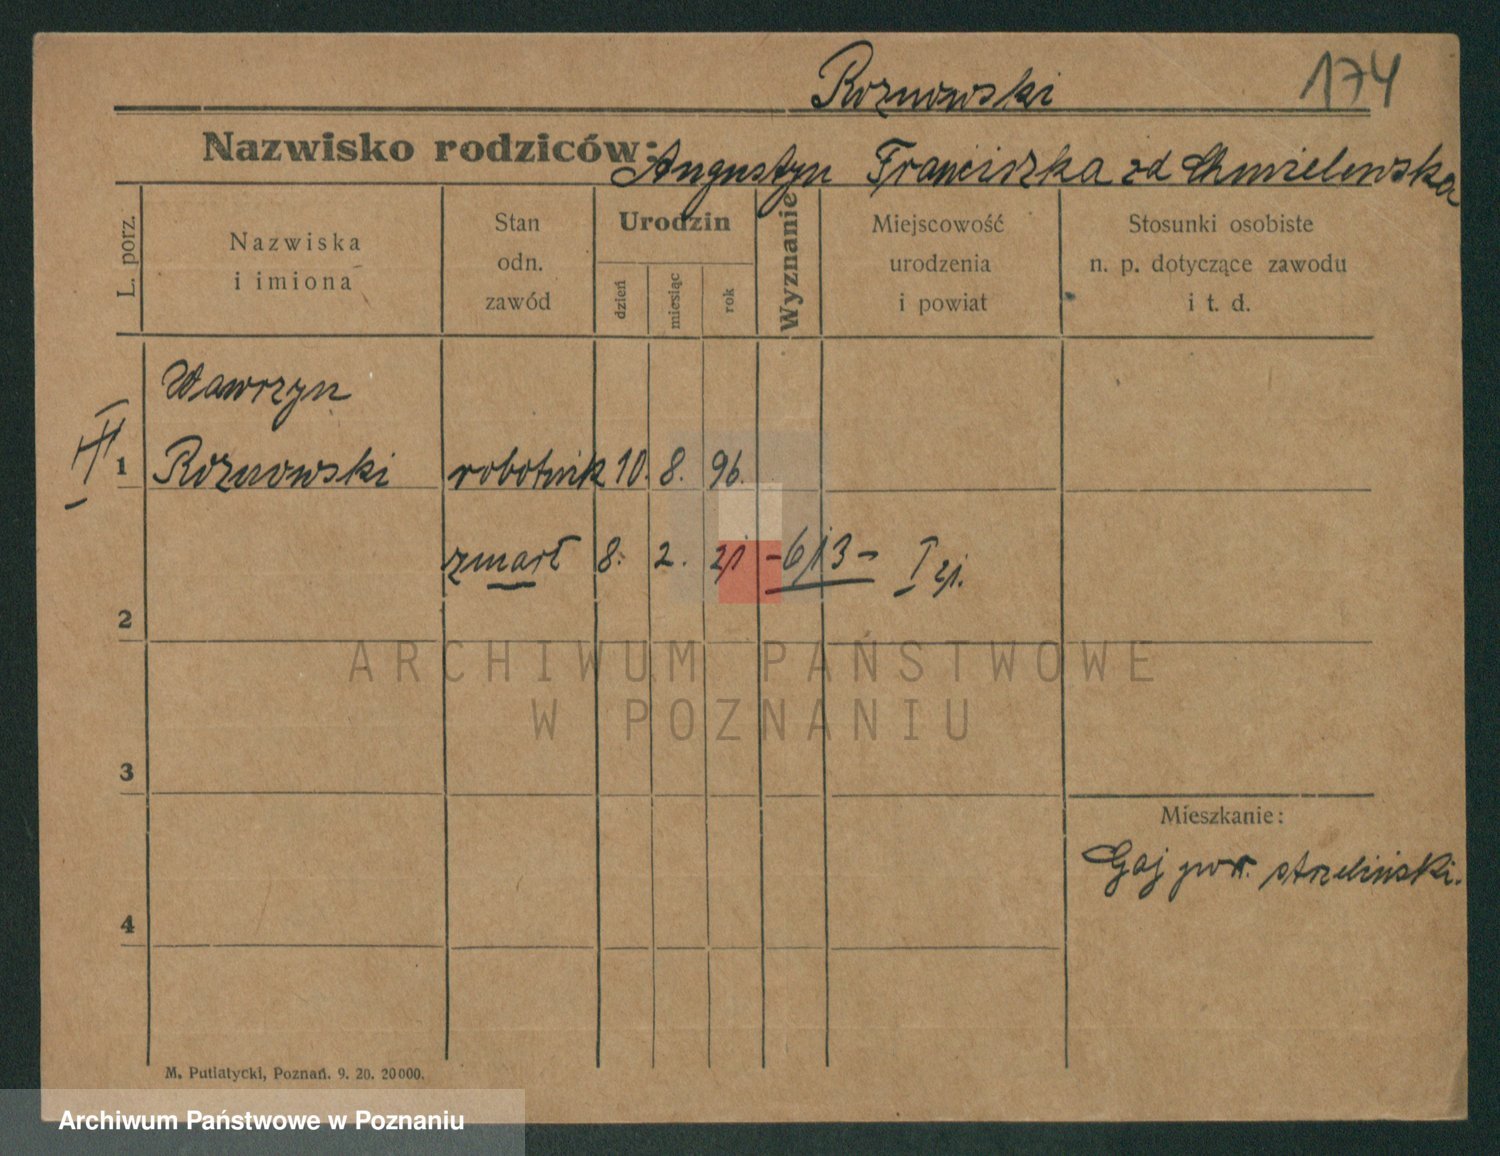 Roznowski 174
Nazwisko rodziców: Augustyn Franciszka zd Chmielewska
L. porz.
Nazwiska
i imiona
Stan
odn.
zawód
Urodzin
dzień
miesiąc
rok
Wyznanie
Miejscowość
urodzenia
i powiat
Stosunki osobiste
n. p. dotyczące zawodu
i t. d.
Wawrzyn
1 Roznowski robotnik 10. 8. 96.
zmarł 8. 2. 21 -613- I 21.
2
3
Mieszkanie:
Gaj pow. strzeliński.
4
M. Putiatycki, Poznań. 9. 20. 20000.
ARCHIWUM PAŃSTWOWE
W POZNANIU
Archiwum Państwowe w Poznaniu